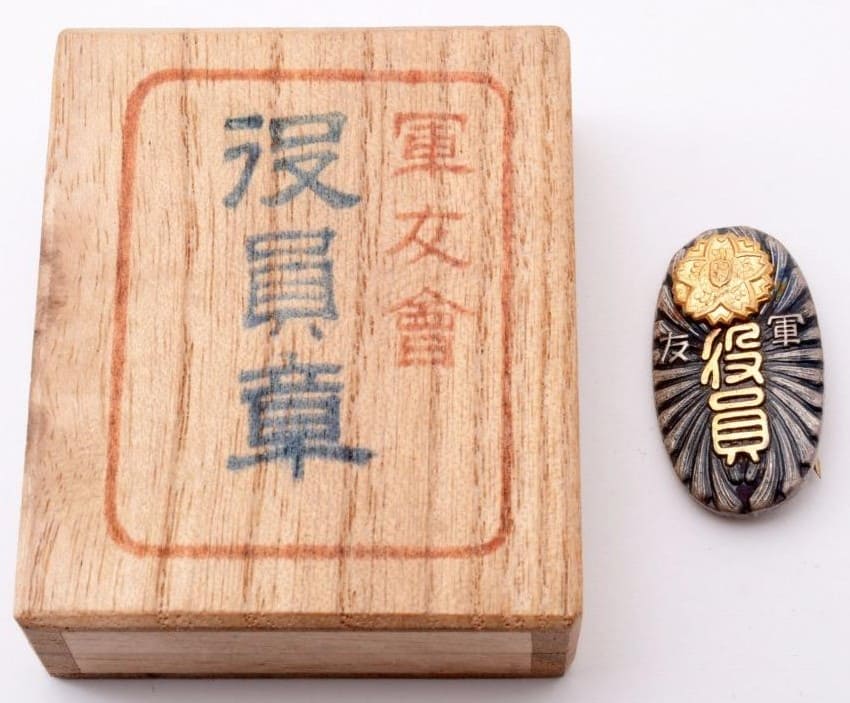 軍友會
役員章
軍友
役員